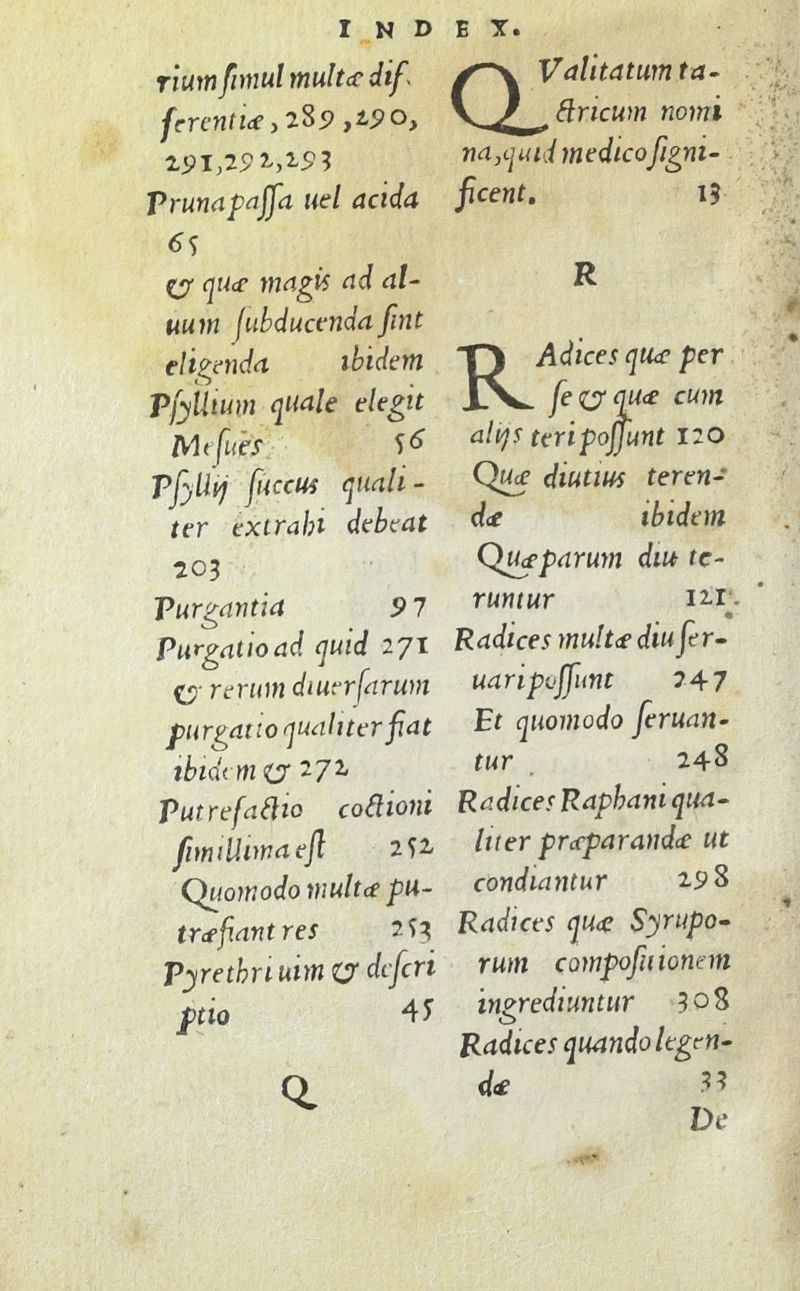 INDEX.
rium ſimul multæ dif.
ferentiæ, 289, 290,
291, 292, 293
Pruna paſſa uel acida
65
& quæ magis ad al-
uum ſubducenda ſint
eligenda ibidem
Pſyllium quale elegit
Meſues 56
Pſyllij ſuccus quali-
ter extrahi debeat
203
Purgantia 97
Purgatio ad quid 271
& rerum diuerſarum
purgatio qualiter fiat
ibidem & 272
Putrefactio coctioni
ſimillima eſt 252
Quomodo multæ pu-
træfiant res 253
Pyrethri uim & deſcri
ptio 45
Q
QValitatum ta-
ctricum nomi
na, quid medico ſigni-
ficent. 13
R
RAdices quæ per
ſe & quæ cum
alijs teri poſſunt 120
Quæ diutius teren-
dæ ibidem
Quæ parum diu te-
runtur 121.
Radices multæ diu ſer-
uari poſſunt 247
Et quomodo ſeruan-
tur 248
Radices Raphani qua-
liter præparandæ ut
condiantur 298
Radices quæ Syrupo-
rum compoſitionem
ingrediuntur 308
Radices quando legen-
dæ 33
De